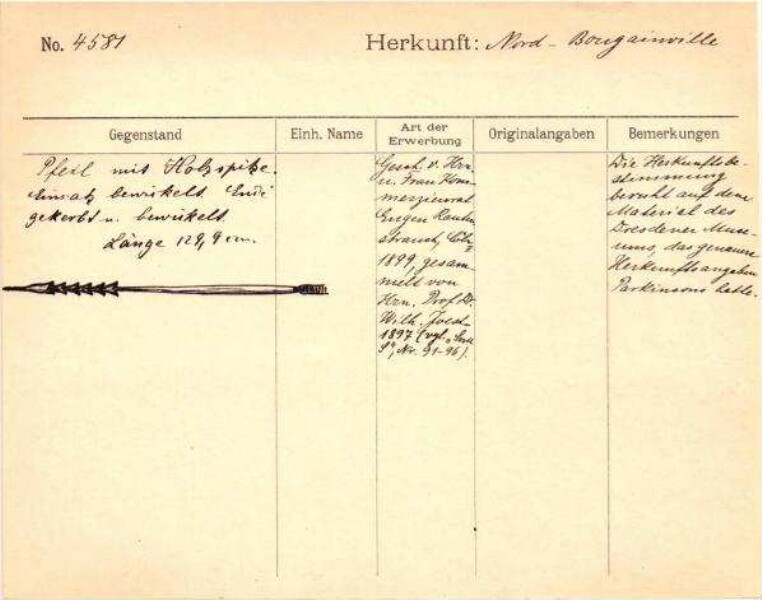 No. 4581
Herkunft: Nord-Bougainville
Gegenstand
Einh. Name
Art der
Erwerbung
Originalangaben
Bemerkungen
Pfeil mit Holzspitze.
Einsatz bewickelt. Ende
gekerbt u. bewickelt.
Länge 129,9 cm.
Gesch. v. Hrn.
u. Frau Kom-
merzienrat
Eugen Rauten-
strauch, Cöln
1899, gesam-
melt von
Hrn. Prof. Dr.
Wilh. Joest
1897 (vgl.
S", Nr. 91-96).
Die Herkunftsbe-
stimmung
beruht auf dem
Material des
Dresdener Muse-
ums, das genauere
Herkunftsangaben
Parkinsons hatte.